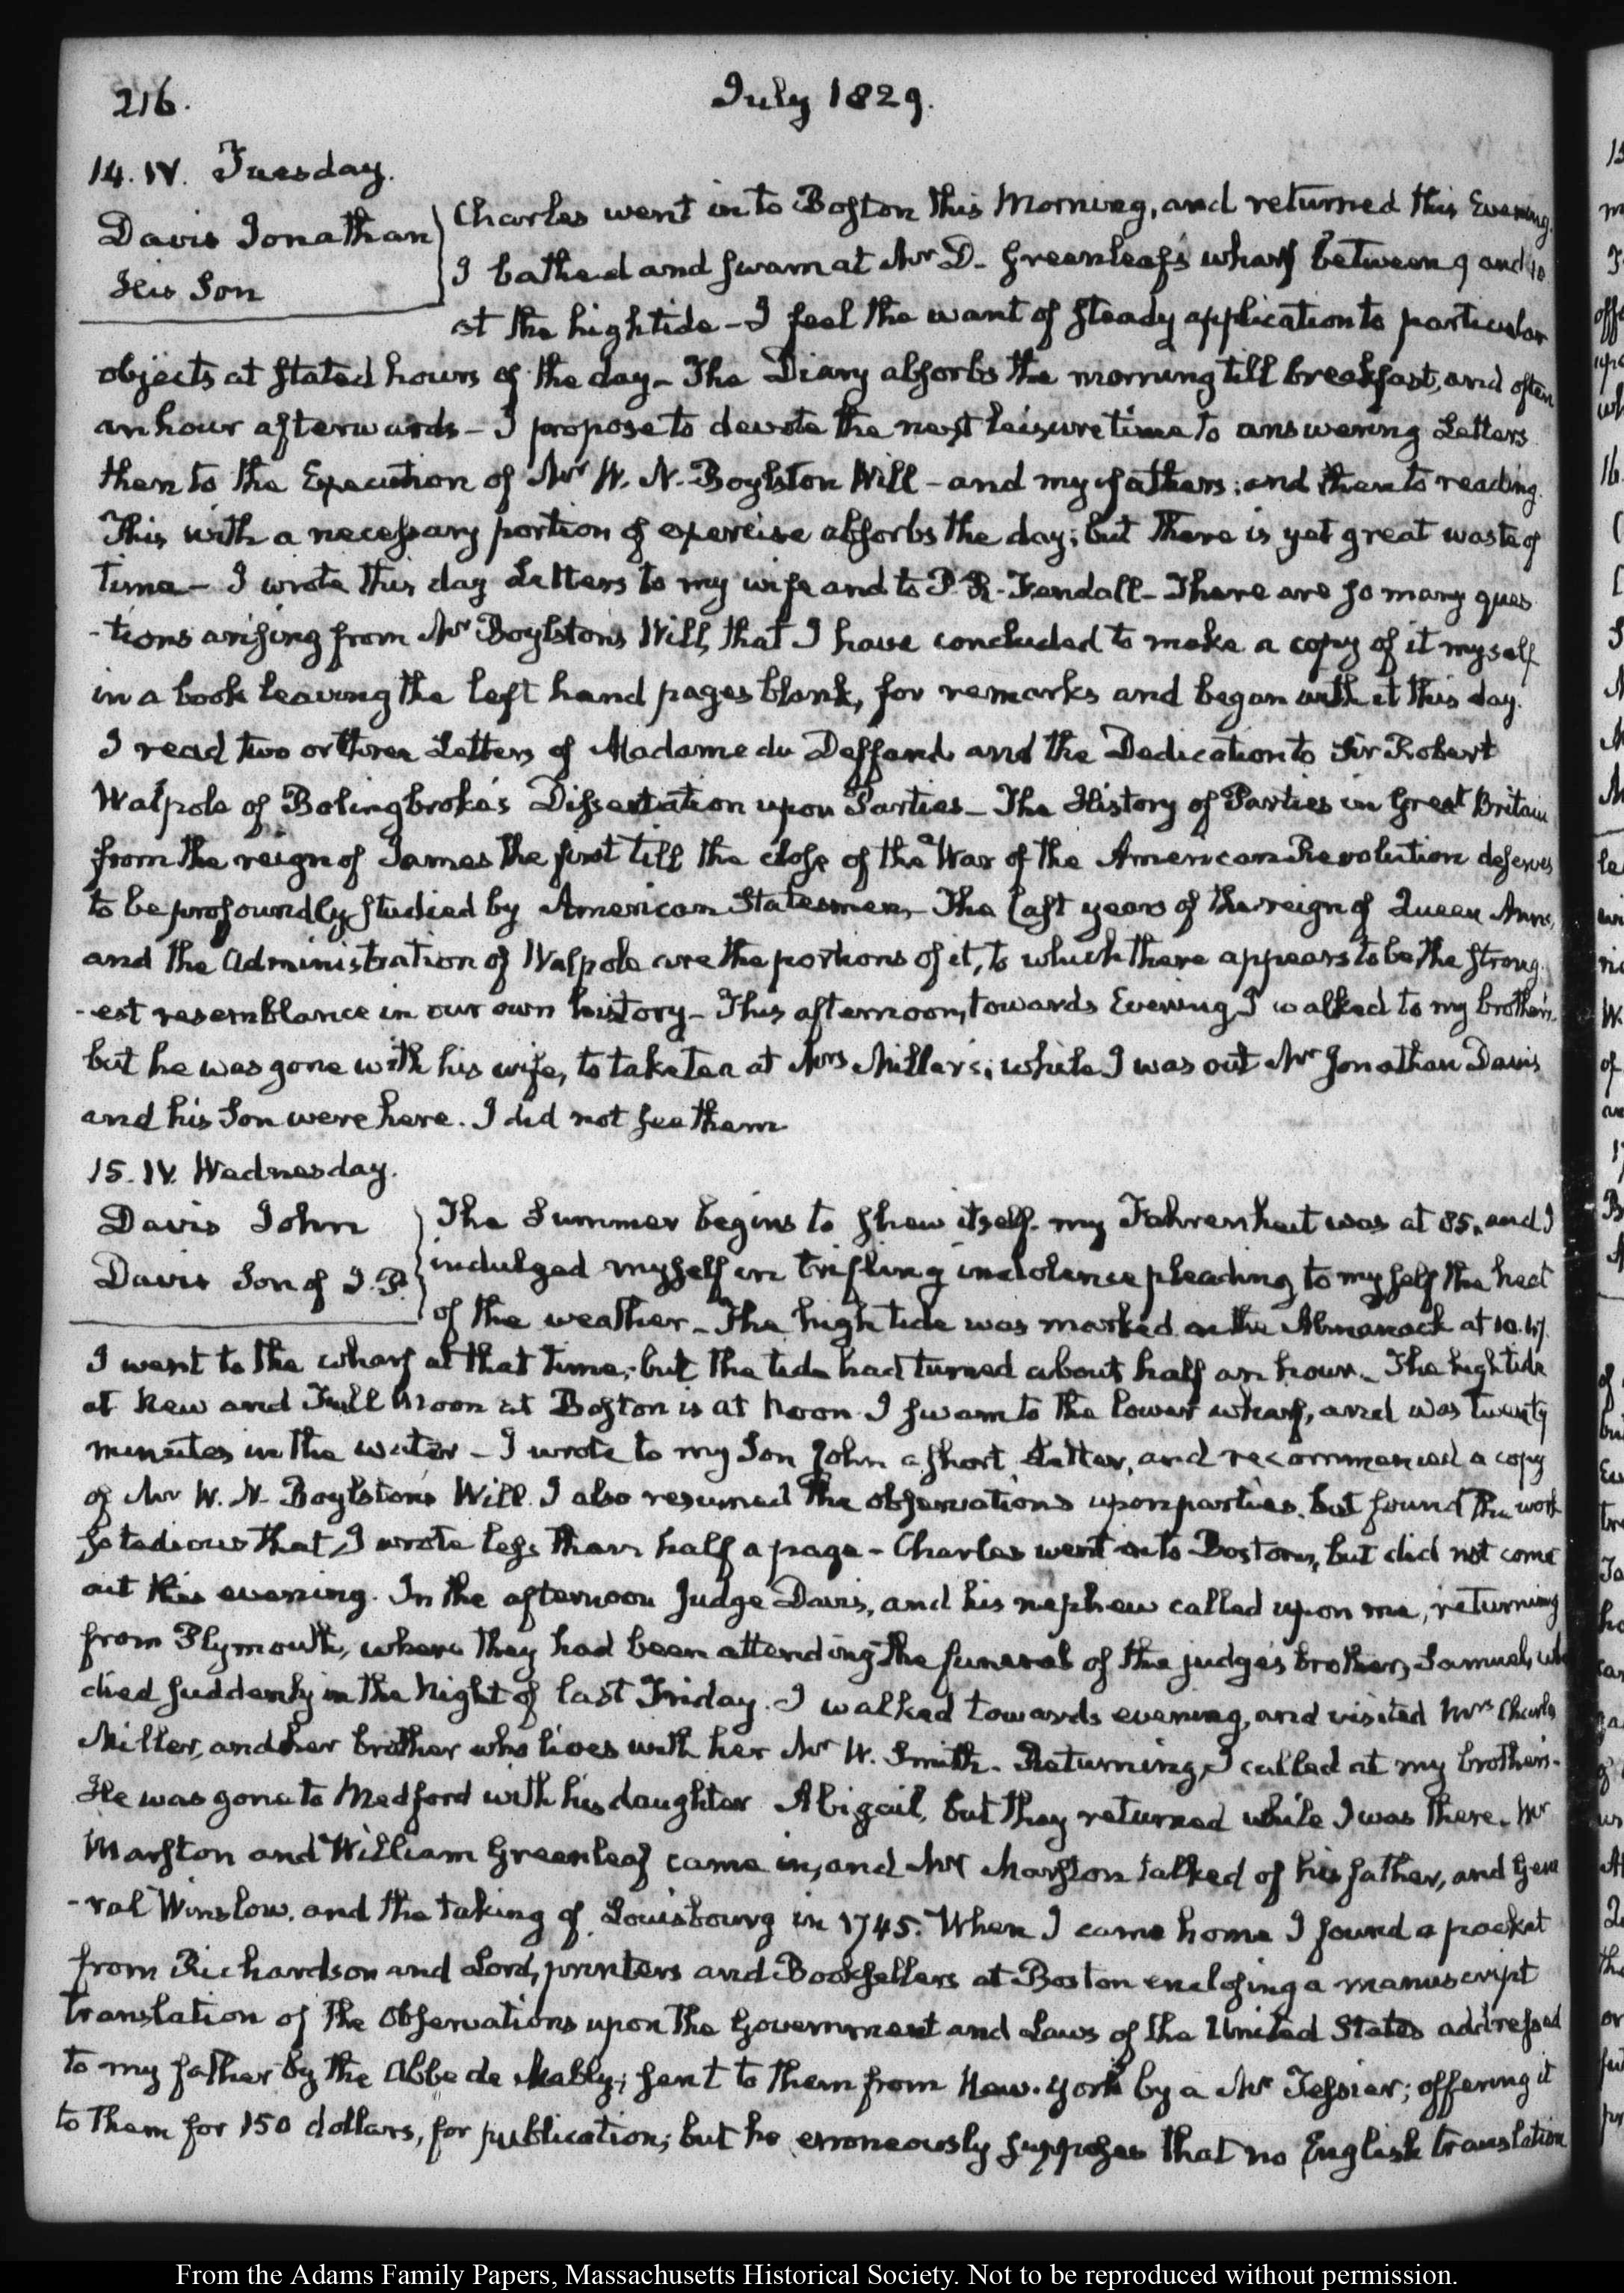 216.
July 1829.
14. IV. Tuesday.
Davis Jonathan
His Son
Charles went in to Boston this Morning, and returned this Evening.
I bathed and swam at Mr D. Greenleaf's wharf between 9 and 10
at the high tide - I feel the want of steady application to particular
objects at stated hours of the day - The Diary absorbs the morning till breakfast, and often
an hour afterwards - I propose to devote the next leisure time to answering Letters
then to the Execution of Mr W. N. Boylston Will - and my fathers; and then to reading.
This with a necessary portion of exercise absorbs the day; but there is yet great waste of
time - I wrote this day Letters to my wife and to P. R. Fendall - There are so many ques
-tions arising from Mr Boylston's Will, that I have concluded to make a copy of it myself
in a book leaving the left hand pages blank, for remarks and began with it this day.
I read two or three Letters of Madame du Deffand and the Dedication to Sir Robert
Walpole of Bolingbroke's Dissertation upon Parties - The History of Parties in Great Britain
from the reign of James the first till the close of the War of the American Revolution deserves
to be profoundly studied by American Statesmen - The last years of the reign of Queen Anne,
and the Administration of Walpole are the portions of it, to which there appears to be the strong
-est resemblance in our own history - This afternoon, towards Evening I walked to my brother's.
but he was gone with his wife, to take tea at Mrs Miller's; while I was out Mr Jonathan Davis
and his Son were here. I did not see them
15. IV. Wednesday.
Davis John
Davis Son of J. P.
The Summer begins to shew itself. my Fahrenheit was at 85. and I
indulged myself in trifling indolence pleading to myself the heat
of the weather - The high tide was marked in the Almanack at 10.47.
I went to the wharf at that time; but the tide had turned about half an hour. The high tide
at New and Full Moon at Boston is at Noon. I swam to the lower wharf, and was twenty
minutes in the water - I wrote to my Son John a short Letter, and recommenced a copy
of Mr W. N. Boylston's Will. I also resumed the observations upon parties. but found the work
so tedious that I wrote less than half a page - Charles went into Boston, but did not come
out this evening. In the afternoon Judge Davis, and his nephew called upon me, returning
from Plymouth, where they had been attending the funeral of the judge's brother, Samuel, who
died suddenly in the Night of last Friday. I walked towards evening, and visited Mrs Charles
Miller, and her brother who lives with her Mr W. Smith. Returning, I called at my brother's.
He was gone to Medford with his daughter Abigail, but they returned while I was there. Mr
Marston and William Greenleaf came in, and Mr Marston talked of his father, and Gene
-ral Winslow. and the taking of Louisbourg in 1745. When I came home I found a packet
from Richardson and Lord, printers and Booksellers at Boston enclosing a manuscript
translation of the Observations upon the Government and Laws of the United States addressed
to my father by the Abbe de Mably; sent to them from New-York by a Mr Tessier; offering it
to them for 150 dollars, for publication; but he erroneously supposes that no English translation
From the Adams Family Papers, Massachusetts Historical Society. Not to be reproduced without permission.